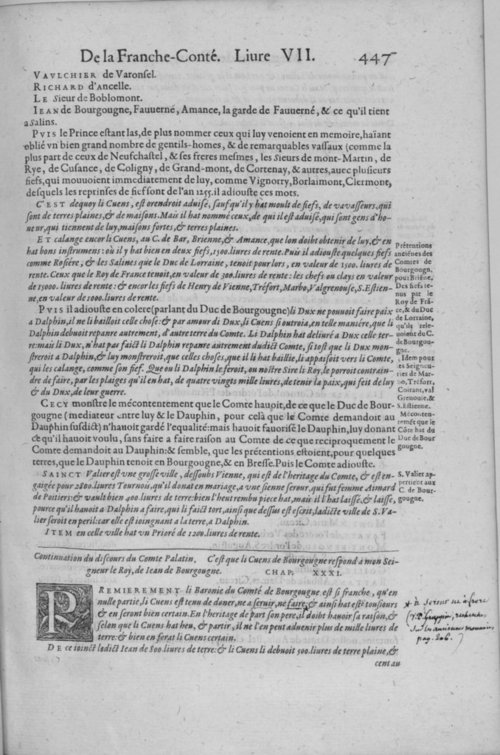 De la Franche-Conté. Liure VII. 447
VAVLCHIER de Varonsel.
RICHARD d'Ancelle.
LE Sieur de Boblomont.
IEAN de Bourgougne, Fauuerné, Amance, la garde de Fauuerné, & ce qu'il tient
a Salins.
PVIS le Prince estant las, de plus nommer ceux qui luy venoient en memoire, haïant
oblié vn bien grand nombre de gentils-homes, & de remarquables vassaux (comme la
plus part de ceux de Neufchastel, & ses freres mesmes, les Sieurs de mont-Martin, de
Rye, de Cusance, de Coligny, de Grand-mont, de Cortenay, & autres, auec plusieurs
fiefs, qui mouuoient immediatement de luy, comme Vignorry, Borlaimont, Clermont,
desquels les reprinses de fief sont de l'an 1255. il adiouste ces mots.
C'EST dequoy li Cuens, est orendroit aduisé, sauf qu'il y hat moult de fiefs, de vavasseurs, qui
sont de terres plaines, & de maisons. Mais il hat nommé ceux, de qui il est aduisé, qui sont gens d'ho-
neur, qui tiennent de luy, maisons fortes, & terres plaines.
ET calange encor li Cuens, au C. de Bar, Brienne, & Amance, que lon doibt obtenir de luy, & en
hat bons instrumens: où il y hat bien en deux fiefs, 1500. liures de rente. Puis il adiouste quelques fiefs
comme Rosiére, & les Salines que le Duc de Lorraine, tenoit pour lors, en valeur de 1500. liures de
rente. Ceux que le Roy de France tenoit, en valeur de 300. liures de rente: les chefs ou clays en valeur
de 15000. liures de rente: & encor les fiefs de Henry de Vienne, Tréfort, Marbo, Valgrenouse, S. Estien-
ne, en valeur de 1000. liures de rente.
PVIS il adiouste en colere (parlant du Duc de Bourgougne) li Dux ne pouuoit faire paix
a Dalphin, il ne li bailloit celle chose: & par amour di Dux, li Cuens li outroia, en telle maniére, que li
Dalphin debuoit repanre autrement, d'autre terre du Comte. Li Dalphin hat deliuré a Dux celle ter-
re: mais li Dux, n'hat pas faict li Dalphin repanre autrement dudict Comte, si tost que li Dux mon-
streroit a Dalphin, & luy monstreroit, que celles choses, que il li hat baillie, li apaisoit vers li Comte,
qui les calange, comme son fief. Que ou li Dalphin le feroit, ou nostre Sire li Roy, le porroit contrain-
dre de faire, par les plaiges qu'il en hat, de quatre vingts mile liures, de tenir la paix, qui feit de luy
& du Dux, de leur guerre.
CECY monstre le mécontentement que le Comte haupit, de ce que le Duc de Bour-
gougne (mediateur entre luy & le Dauphin, pour celà que le Comte demandoit au
Dauphin susdict) n'hauoit gardé l'equalité: mais hauoit fauorisé le Dauphin, luy donant
ce qu'il hauoit voulu, sans faire a faire raison au Comte de ce que reciproquement le
Comte demandoit au Dauphin: & semble, que les prétentions estoient, pour quelques
terres, que le Dauphin tenoit en Bourgougne, & en Bresse. Puis le Comte adiouste.
SAINCT Valier est vne grosse ville, dessoubs Vienne, qui est de l'heritage du Comte, & est en-
gaigée pour 2800. liures Tournois, qu'il donat en mariage, a vne sienne serour, qui fut femme Aimard
de Poitiers: & vault bien 400. liures de terre: bien l'heut rembu piece hat, mais il l'hat laissé, & laisse,
pource qu'il hauoit a Dalphin a faire, qui li faict tort, ainsi que dessus est escrit, ladicte ville de S. Va-
lier seroit en peril: car elle est ioingnant a la terre, a Dalphin.
ITEM en celle ville hat vn Prioré de 1200. liures de rente.
Prétentions
antiénes des
Comtes de
Bourgougn,
pour Briéne.
Des fiefs te-
nus par le
Roy de Frã-
ce, & du Duc
de Lorraine,
qu'ils rele-
uoient du C.
de Bourgou-
gne.
Idem pour
les Seigneu-
ries de Mar-
bo, Tréfort,
Coirant, val
Grenouse, &
S. Estienne.
Mécontẽ-
temẽt que le
Côte hat du
Duc de Bour
gougne.
S. Valier ap-
pertient aux
C. de Bour-
gougne.
Continuation du discours du Comte Palatin. C'est que li Cuens de Bourgougne respond a mon Sei-
gneur le Roy, de Iean de Bourgougne. CHAP. XXXI.
PREMIEREMENT li Baronie du Comté de Bourgougne est si franche, qu'en
nulle partie, li Cuens est tenu de doner, ne a seruir, ne faire, & ainsi hat esté tousiours
& en seront bien certain. En l'heritage de part son pere, il doibt hauoir sa raison, &
selon que li Cuens hat heu, & partir, il ne l'en peut aduenir plus de mille liures de
terre: & bien en serat li Cuens certain.
DE ce ioinct ladict Iean de 800. liures de terre: & li Cuens li debuoit 500. liures de terre plaine, &
cent au